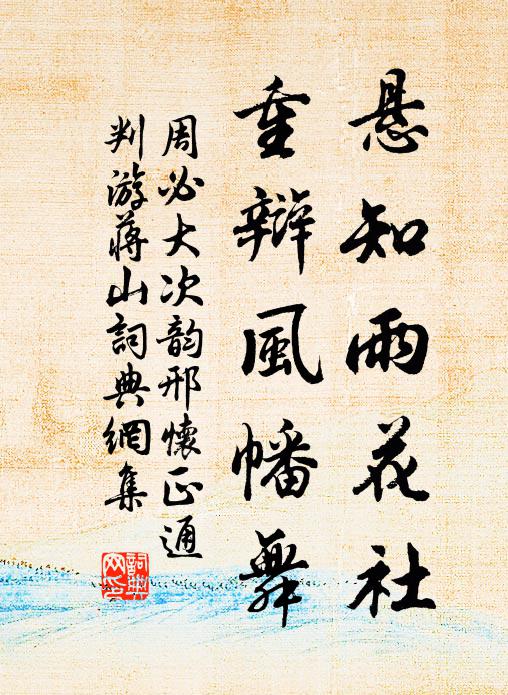 悬知雨花社
重辩風幡舞
周必大次韵邢懷正通
判游蔣山詞典網集